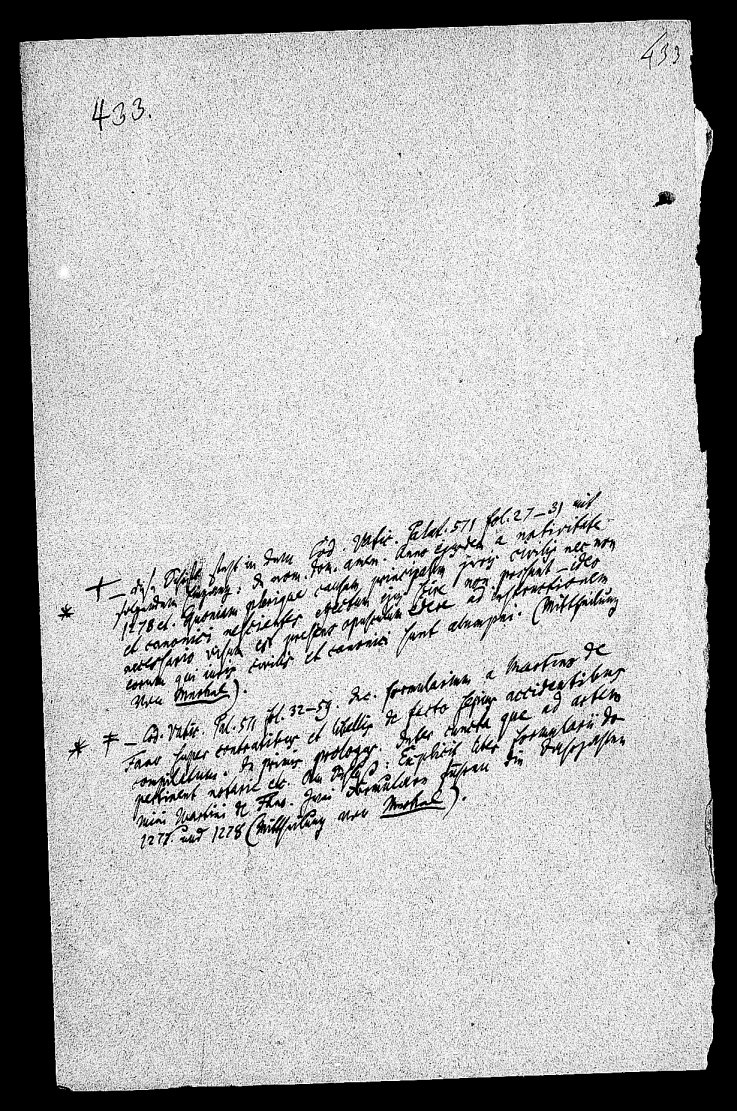 433
433.
+ – dies. Schrift steht in dem Cod. Vatic. Palat. 571 fol. 27–31 mit
folgendem Eingang: In nom. Dom. amen. Anno ejusdem a nativitate
1278 etc. Quoniam plerique causam principalem juris civilis nec non
et canonici nescientes effectum ejus scire non possunt – ideo
necessario visum est presens opusculum edere ad instructionem
eorum qui iuris civilis et canonici sunt alumpni. (Mittheilung
von Merkel).
* ‡ – Cod. Vatic. Pal. 571 fol. 32–59. Inc. formularium a Martino de
Fano super contractibus et libellis de facto sepius accidentibus
compilatum. In primis prologus. Debet cuncta que ad artem
pertinent notarie etc. Am Schluß: Explicit liber formularii do
mini Martini de Fano. Zwei Formulare führen die Jahrzahlen
1275. und 1278 (Mittheilung von Merkel).